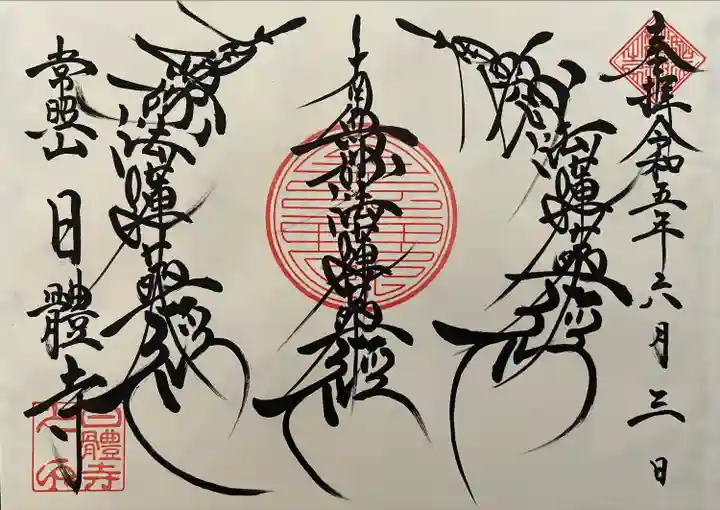 奉拝 令和五年六月三日
妙法蓮華經
南無妙法蓮華經
妙法蓮華經
常照山 日體寺
日體寺